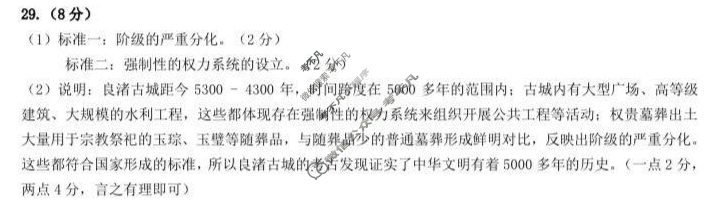 29.（8分）
（1）标准一：阶级的严重分化。（2分）
标准二：强制性的权力系统的设立。（2分）
（2）说明：良渚古城距今 5300 - 4300 年，时间跨度在 5000 多年的范围内；古城内有大型广场、高等级
建筑、大规模的水利工程，这些都体现存在强制性的权力系统来组织开展公共工程等活动；权贵墓葬出土
大量用于宗教祭祀的玉琮、玉璧等随葬品，与随葬品少的普通墓葬形成鲜明对比，反映出阶级的严重分化。
这些都符合国家形成的标准，所以良渚古城的考古发现证实了中华文明有着 5000 多年的历史。（一点 2 分，
两点 4 分，言之有理即可）